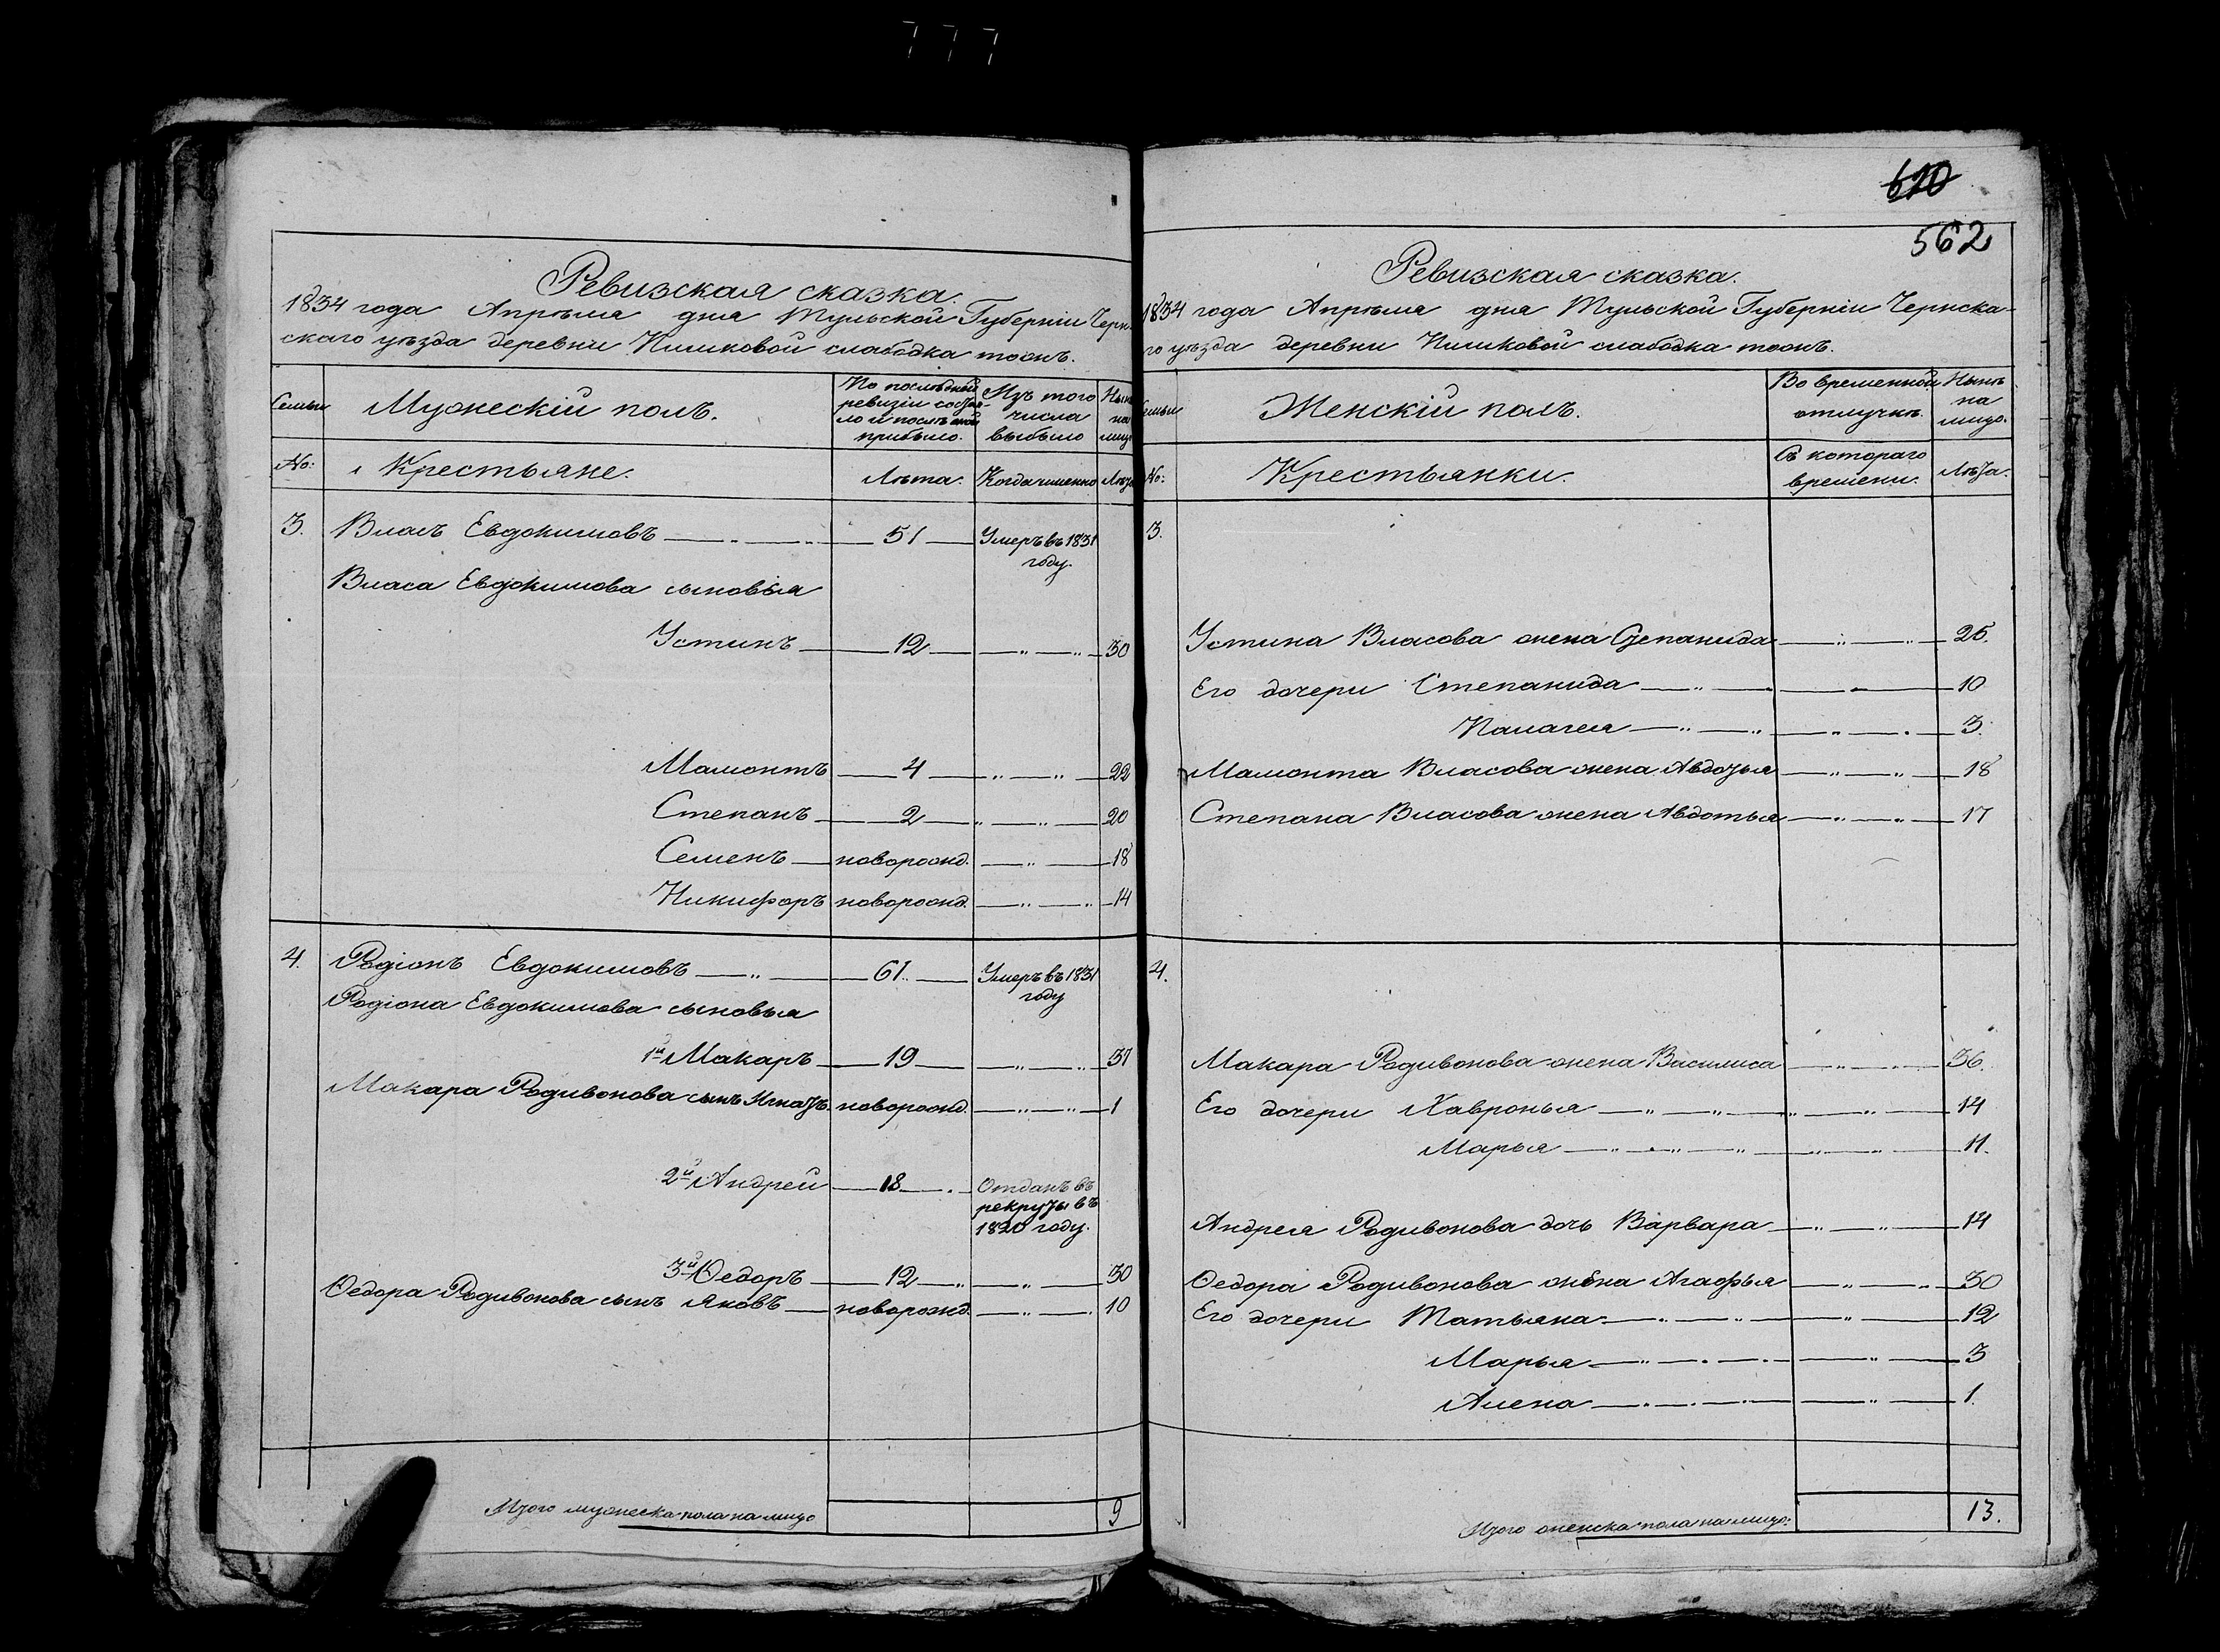 777
Ревизская сказка.
1834 года Апрѣля дня Тульской Губерніи Черн-
скаго уѣзда деревни слабодка тожъ.
Семьи
Мужескій полъ.
По послѣдней
ревизіи состоя-
ло и послѣ оной
прибыло.
Изъ того
числа
выбыло
Нынѣ
на
лицо
No:
Крестьяне.
Лѣта.
Когда именно
Лѣта
3. Власъ Евдокимовъ 51 Умеръ въ 1831
году.
Власа Евдокимова сыновья
Устинъ 12 30
Мамонтъ 4 22
Степанъ 2 20
Семенъ новорожд. 18
Никифоръ новорожд. 14
4. Родіонъ Евдокимовъ 61 Умеръ въ 1831
году
Родіона Евдокимова сыновья
1й Макаръ 19 37
Макара Родивонова сынъ Игнатъ новорожд. 1
2й Андрей 18 Отданъ въ
рекруты въ
1820 году.
3й Ѳедоръ 12 30
Ѳедора Родивонова сынъ Яковъ новорожд. 10
Итого мужеска пола на лицо 9
610
562
Ревизская сказка.
1834 года Апрѣля дня Тульской Губерніи Чернска-
го уѣзда деревни слабодка тожъ.
Семьи
Женскій полъ.
Во временной
отлучкѣ.
Нынѣ
на
лицо.
No:
Крестьянки.
Съ котораго
времени.
Лѣта.
3.
Устина Власова жена Степанида 26.
Его дочери Степанида 10
Палагея 3.
Мамонта Власова жена Авдотья 18
Степана Власова жена Авдотья 17
4.
Макара Родивонова жена Василиса 36.
Его дочери Хавронья 14
Марья 11.
Андрея Родивонова дочь Варвара 14
Ѳедора Родивонова жена Агафья 30
Его дочери Татьяна 12
Марья 3
Алена 1.
Итого женска пола на лицо: 13.